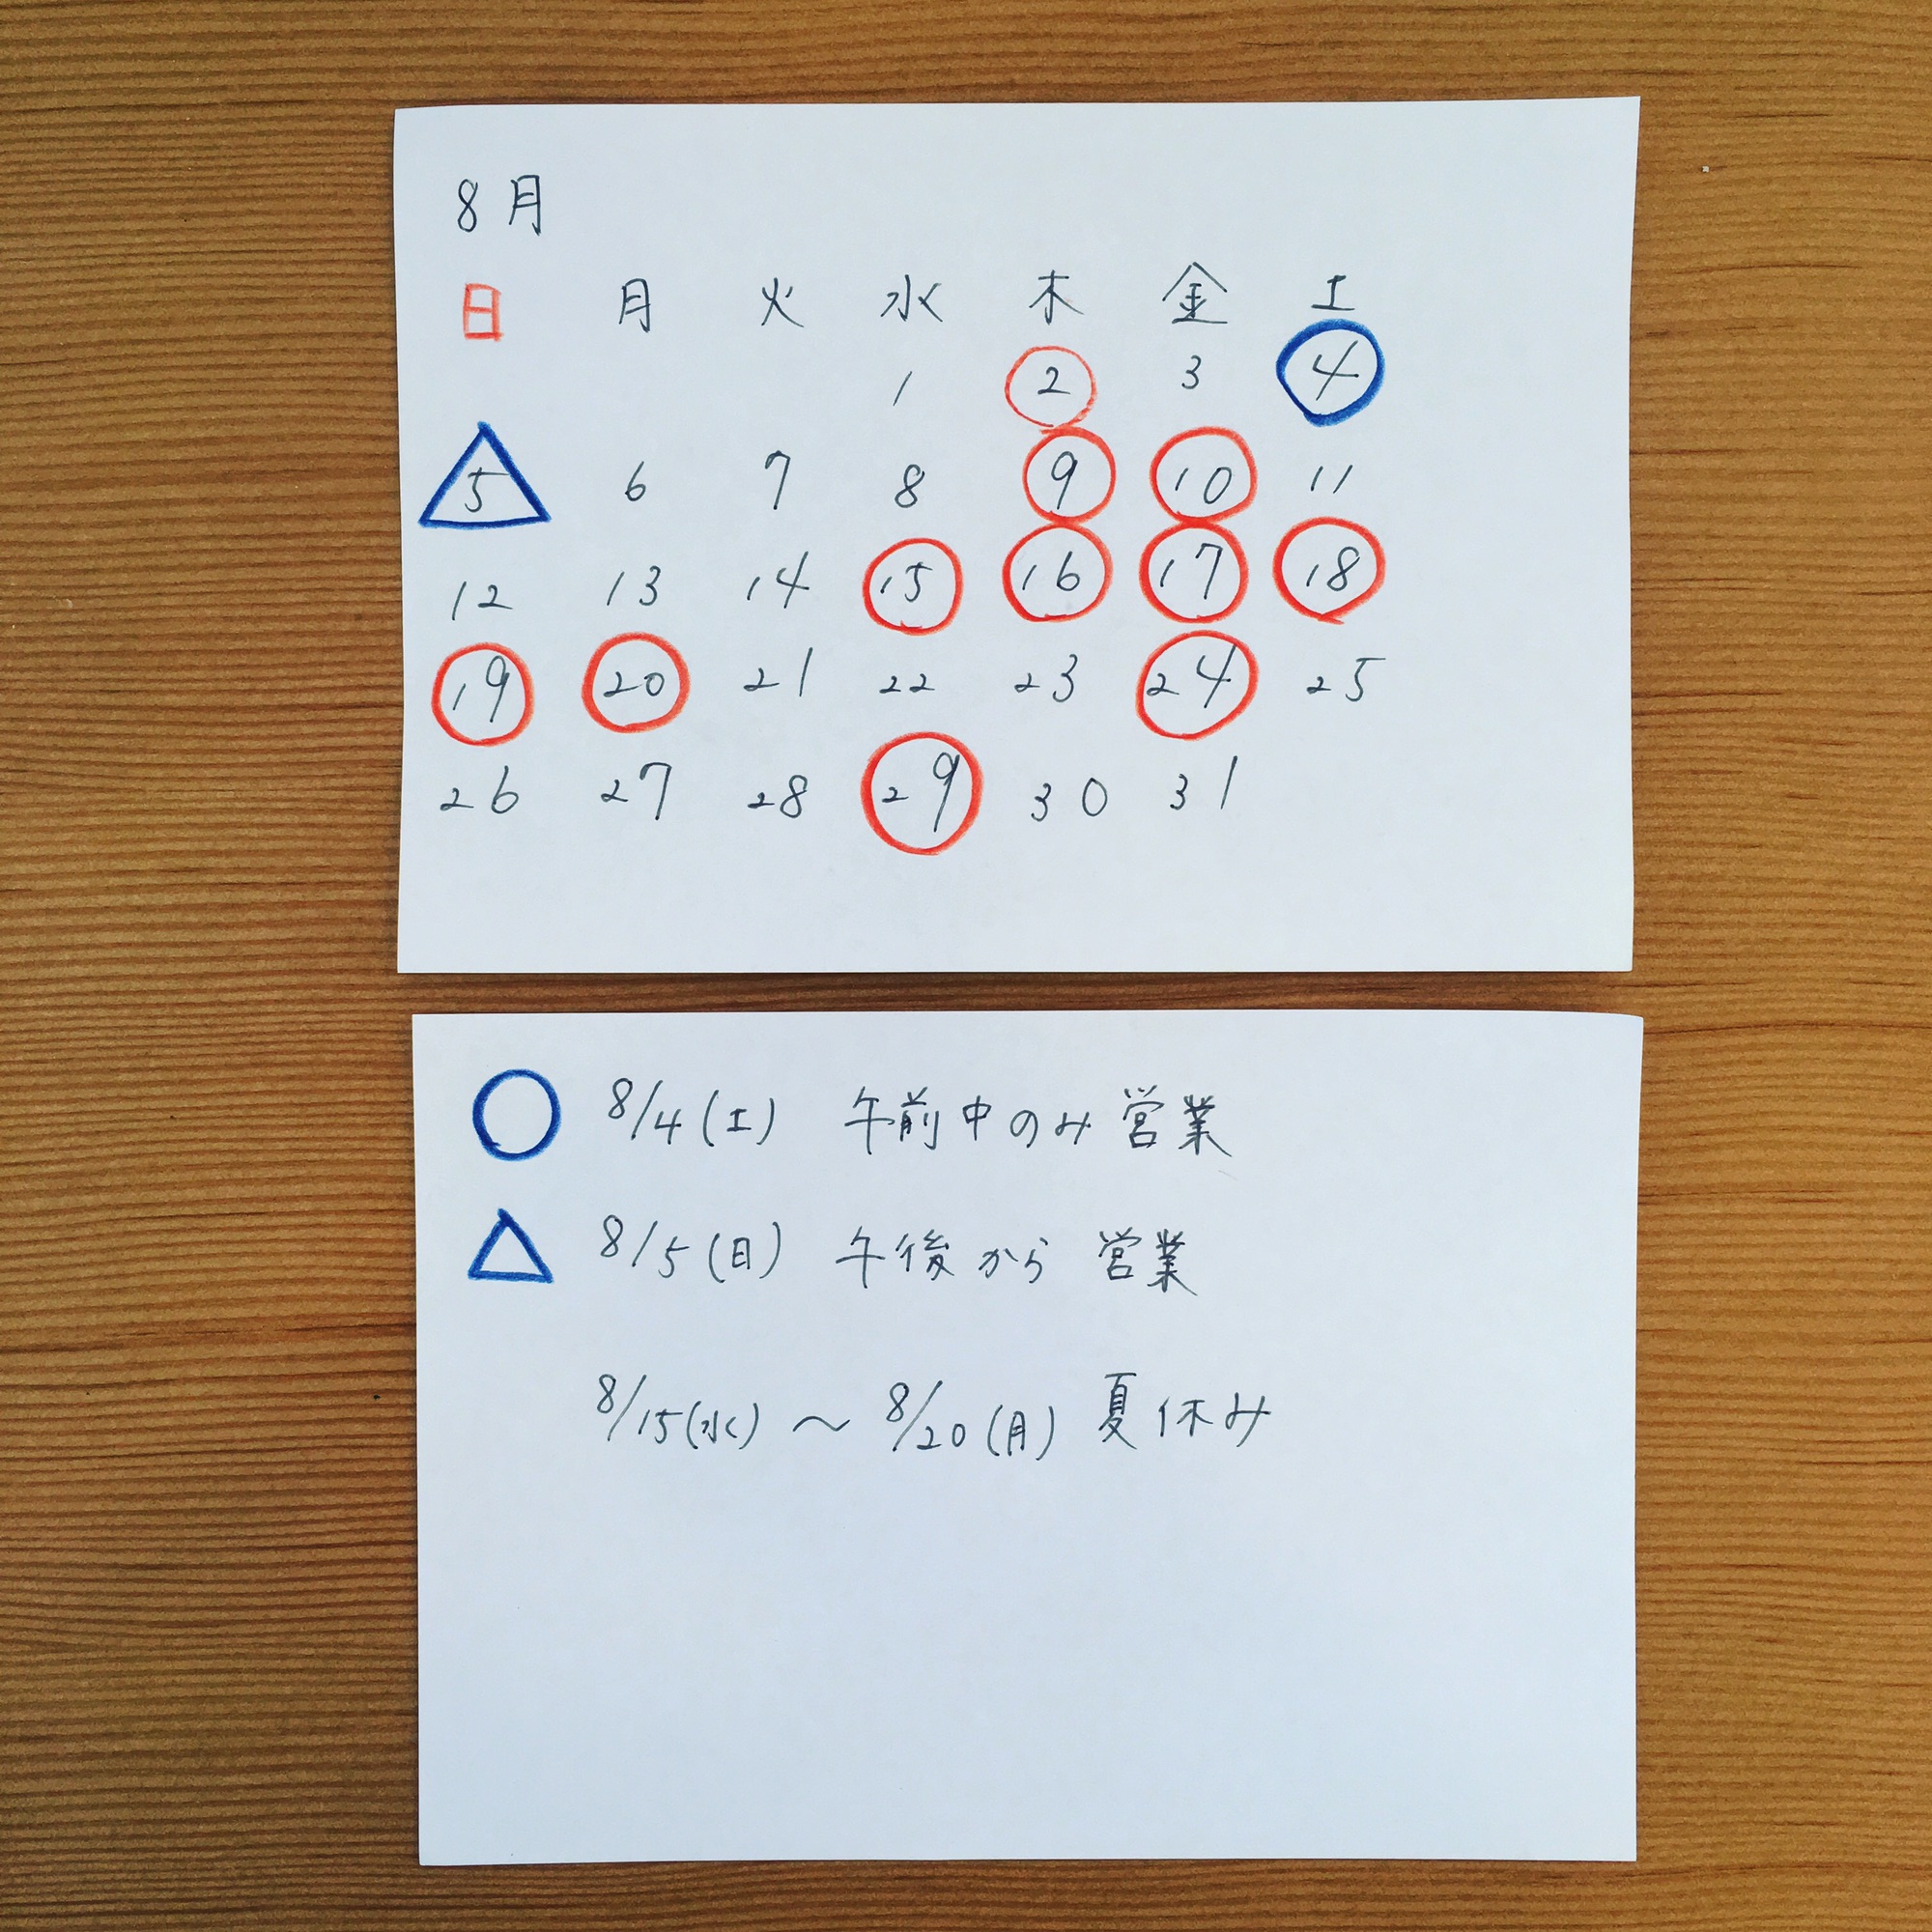 8月
日 月 火 水 木 金 土
1 2 3 4
5 6 7 8 9 10 11
12 13 14 15 16 17 18
19 20 21 22 23 24 25
26 27 28 29 30 31
8/4(土) 午前中のみ営業
8/5(日) 午後から営業
8/15(水)～8/20(月) 夏休み